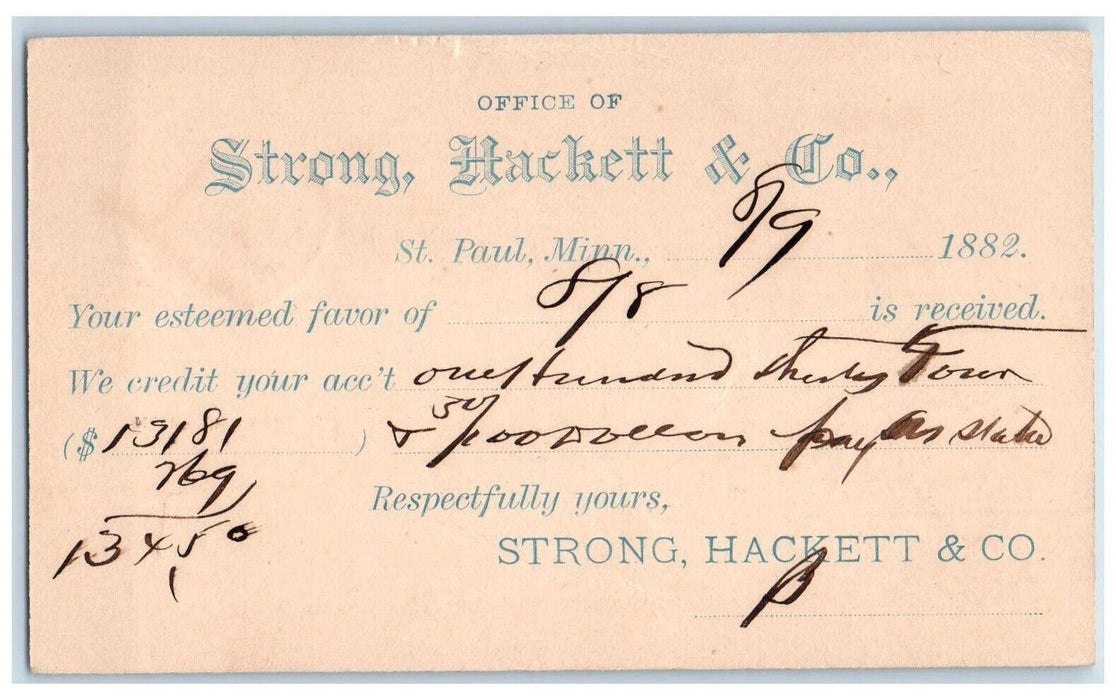 OFFICE OF
Strong, Hackett & Co.,
St. Paul, Minn., 8/9 1882.
Your esteemed favor of 8/8 is received.
We credit your acc't one Hundred thirty Four
($ 13181 ) & 50/100 Dollars pay as state
269
Respectfully yours,
13450
STRONG, HACKETT & CO.
B